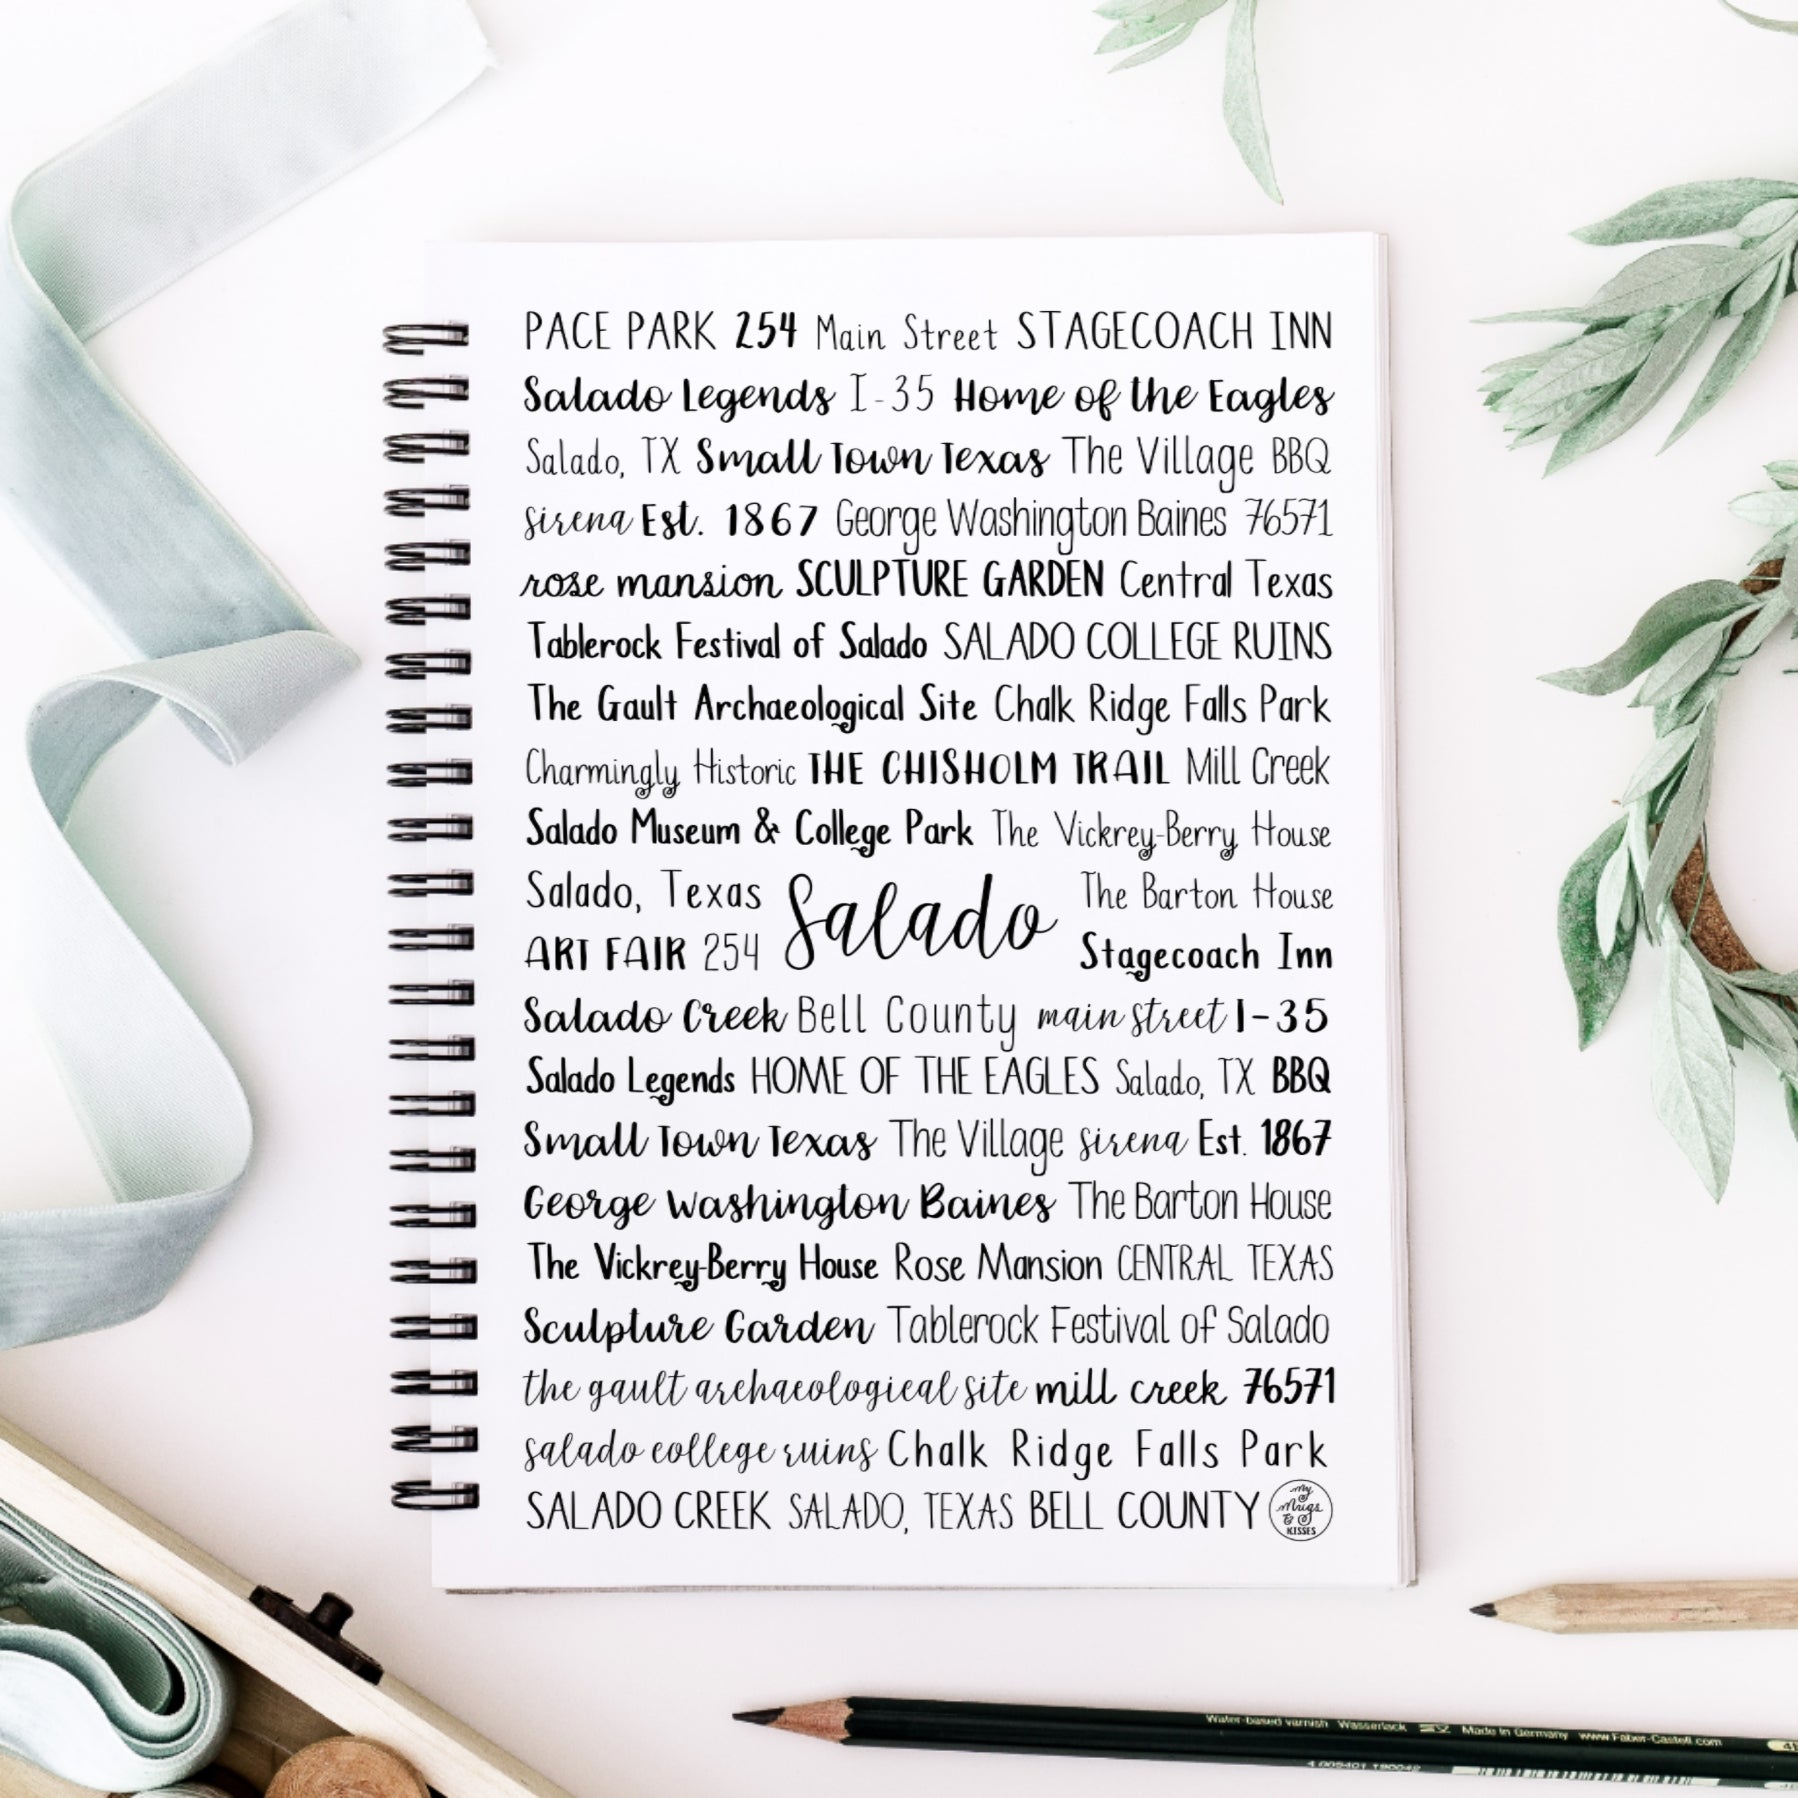 PACE PARK 254 Main Street STAGECOACH INN
Salado Legends I-35 Home of the Eagles
Salado, TX Small Town Texas The Village BBQ
sirena Est. 1867 George Washington Baines 76571
rose mansion SCULPTURE GARDEN Central Texas
Tablerock Festival of Salado SALADO COLLEGE RUINS
The Gault Archaeological Site Chalk Ridge Falls Park
Charmingly Historic THE CHISHOLM TRAIL Mill Creek
Salado Museum & College Park The Vickrey-Berry House
Salado, Texas
ART FAIR 254
Salado
The Barton House
Stagecoach Inn
Salado Creek Bell County main street I-35
Salado Legends HOME OF THE EAGLES Salado, TX BBQ
Small Town Texas The Village sirena Est. 1867
George Washington Baines The Barton House
The Vickrey-Berry House Rose Mansion CENTRAL TEXAS
Sculpture Garden Tablerock Festival of Salado
the gault archaeological site mill creek 76571
salado college ruins Chalk Ridge Falls Park
SALADO CREEK SALADO, TEXAS BELL COUNTY
my
Mugs
&
KISSES
Water-based varnish Wasserlack Made in Germany www.Faber-Castell.com